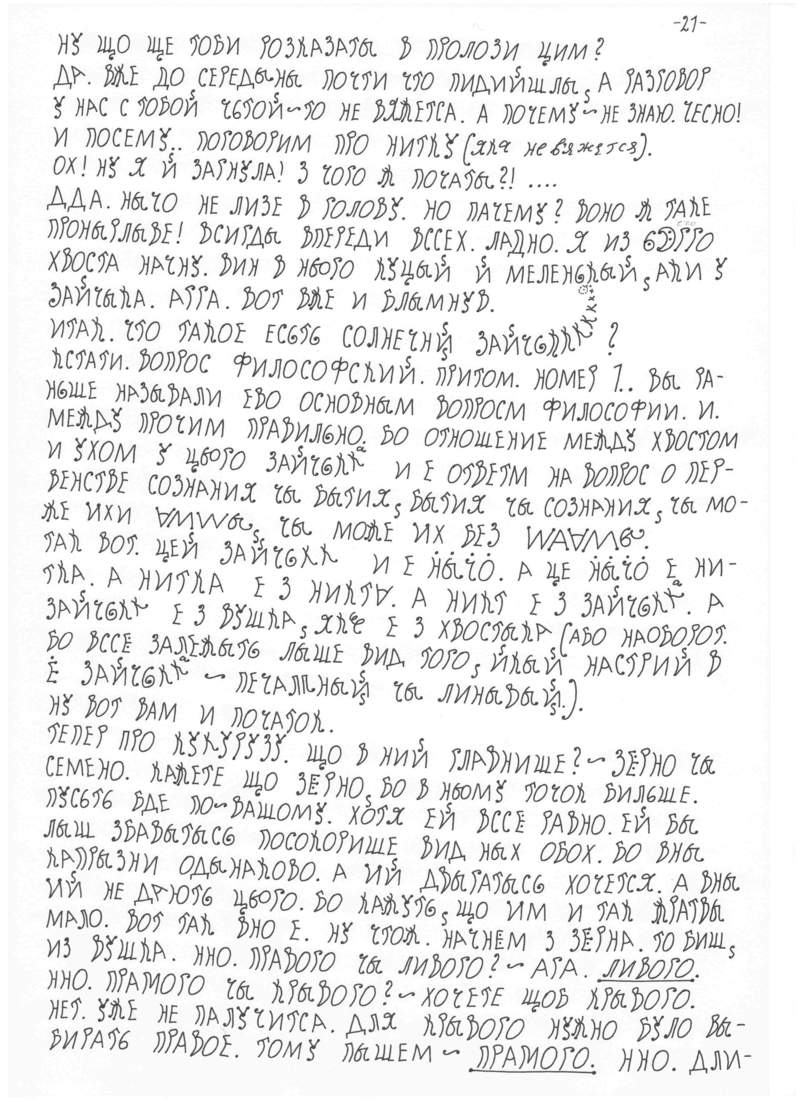 -21-
НУ ЩО ЩЕ ТОБИ РОЗКАЗАТЫ В ПРОЛОЗИ ЦИМ?
ДА. ВЖЕ ДО СЕРЕДЫНЫ ПОЧТИ ЧТО ПИДИЙШЛЫ, А РАЗГОВОР
У НАС С ТОБОЙ ЧЬТОЙ~ТО НЕ ВЯЖЕТСА. А ПОЧЕМУ~НЕ ЗНАЮ. ЧЕСНО!
И ПОСЕМУ.. ПОГОВОРИМ ПРО НИТКУ (яка не вяжется).
ОХ! НУ Я Й ЗАГНУЛА! З ЧОГО Ж ПОЧАТЫ?! ....
ДДА. НЫЧО НЕ ЛИЗЕ В ГОЛОВУ. НО ПАЧЕМУ? ВОНО Ж ТАКЕ
ПРОНЫРЛЫВЕ! ВСИГДЫ ВПЕРЕДИ ВССЕХ. ЛАДНО. Я ИЗ
ХВОСТА НАЧНУ. ВИН В НЬОГО КУЦЫЙ Й МЕЛЕНЬКЫЙ, АКИ У
ЗАЙЧЫКА. АГГА. ВОТ ВЖЕ И БЛЫМНУВ.
ИТАК. ЧТО ТАКОЕ ЕСЬТЬ СОЛНЕЧНИЙ ЗАЙЧЬККККК ?
КСТАТИ. ВОПРОС ФИЛОСОФСКИЙ. ПРИТОМ. НОМЕР 1.. ВЫ РА-
НЬШЕ НАЗЫВАЛИ ЕВО ОСНОВНЫМ ВОПРОСМ ФИЛОСОФИИ. И.
МЕЖДУ ПРОЧИМ ПРАВИЛЬНО. БО ОТНОШЕНИЕ МЕЖДУ ХВОСТОМ
И УХОМ У ЦЬОГО ЗАЙЧЬККа И Е ОТВЕТМ НА ВОПРОС О ПЕР-
ВЕНСТВЕ СОЗНАНИЯ ЧЫ БЫТИЯ, БЫТИЯ ЧЫ СОЗНАНИЯ, ЧЫ МО-
ЖЕ ИХИ ЧЫ МОЖЕ ИХ БЕЗ
ТАК ВОТ. ЦЕЙ ЗАЙЧЬКК И Е НЫЧО. А ЦЕ НЫЧО Е НИ-
ТКА. А НИТКА Е З НИКТА. А НИКТ Е З ЗАЙЧЬКа. А
ЗАЙЧЬКК Е З ВУШКА, ЯКЕ Е З ХВОСТЫКА (АБО НАОБОРОТ.
БО ВССЕ ЗАЛЕЖЫТЬ ЛЫШЕ ВИД ТОГО, ЙКЫЙ НАСТРИЙ В
Е ЗАЙЧЬККа ~ ПЕЧАЛЛНЫЙ ЧЫ ЛИНЫВЫЙ.).
НУ ВОТ ВАМ И ПОЧАТОК.
ТЕПЕР ПРО КУКУРУЗУ. ЩО В НИЙ ГЛАВНИШЕ? ~ ЗЕРНО ЧЫ
СЕМЕНО. КАЖЕТЕ ЩО ЗЕРНО, БО В НЬОМУ ТОЧОК БИЛЬШЕ.
ПУСЬТЬ БДЕ ПО~ВАШОМУ. ХОТЯ ЕЙ ВССЕ РАВНО. ЕЙ БЫ
ЛЫШ ЗБАВЫТЫСЬ ПОСКОРИШЕ ВИД НЫХ ОБОХ. БО ВНЫ
КАПРЫЗНИ ОДЫНАКОВО. А ИЙ ДВЫГАТЫСЬ ХОЧЕТСЯ. А ВНЫ
ИЙ НЕ ДАЮТЬ ЦЬОГО. БО КАЖУТЬ, ЩО ИМ И ТАК ЖРАТВЫ
МАЛО. ВОТ ТАК ВНО Е. НУ ЧТОЖ. НАЧНЕМ З ЗЕРНА. ТО БИШ,
ИЗ ВУШКА. ННО. ПРАВОГО ЧЫ ЛИВОГО? ~ АГА. ЛИВОГО.
ННО. ПРАМОГО ЧЫ КРЫВОГО? ~ ХОЧЕТЕ ЩОБ КРЫВОГО.
НЕТ. УЖЕ НЕ ПАЛУЧИТСА. ДЛЯ КРЫВОГО НУЖНО БУЛО ВЫ-
БИРАТЬ ПРАВОЕ. ТОМУ ПЫШЕМ ~ ПРАМОГО. ННО. ДЛИ-